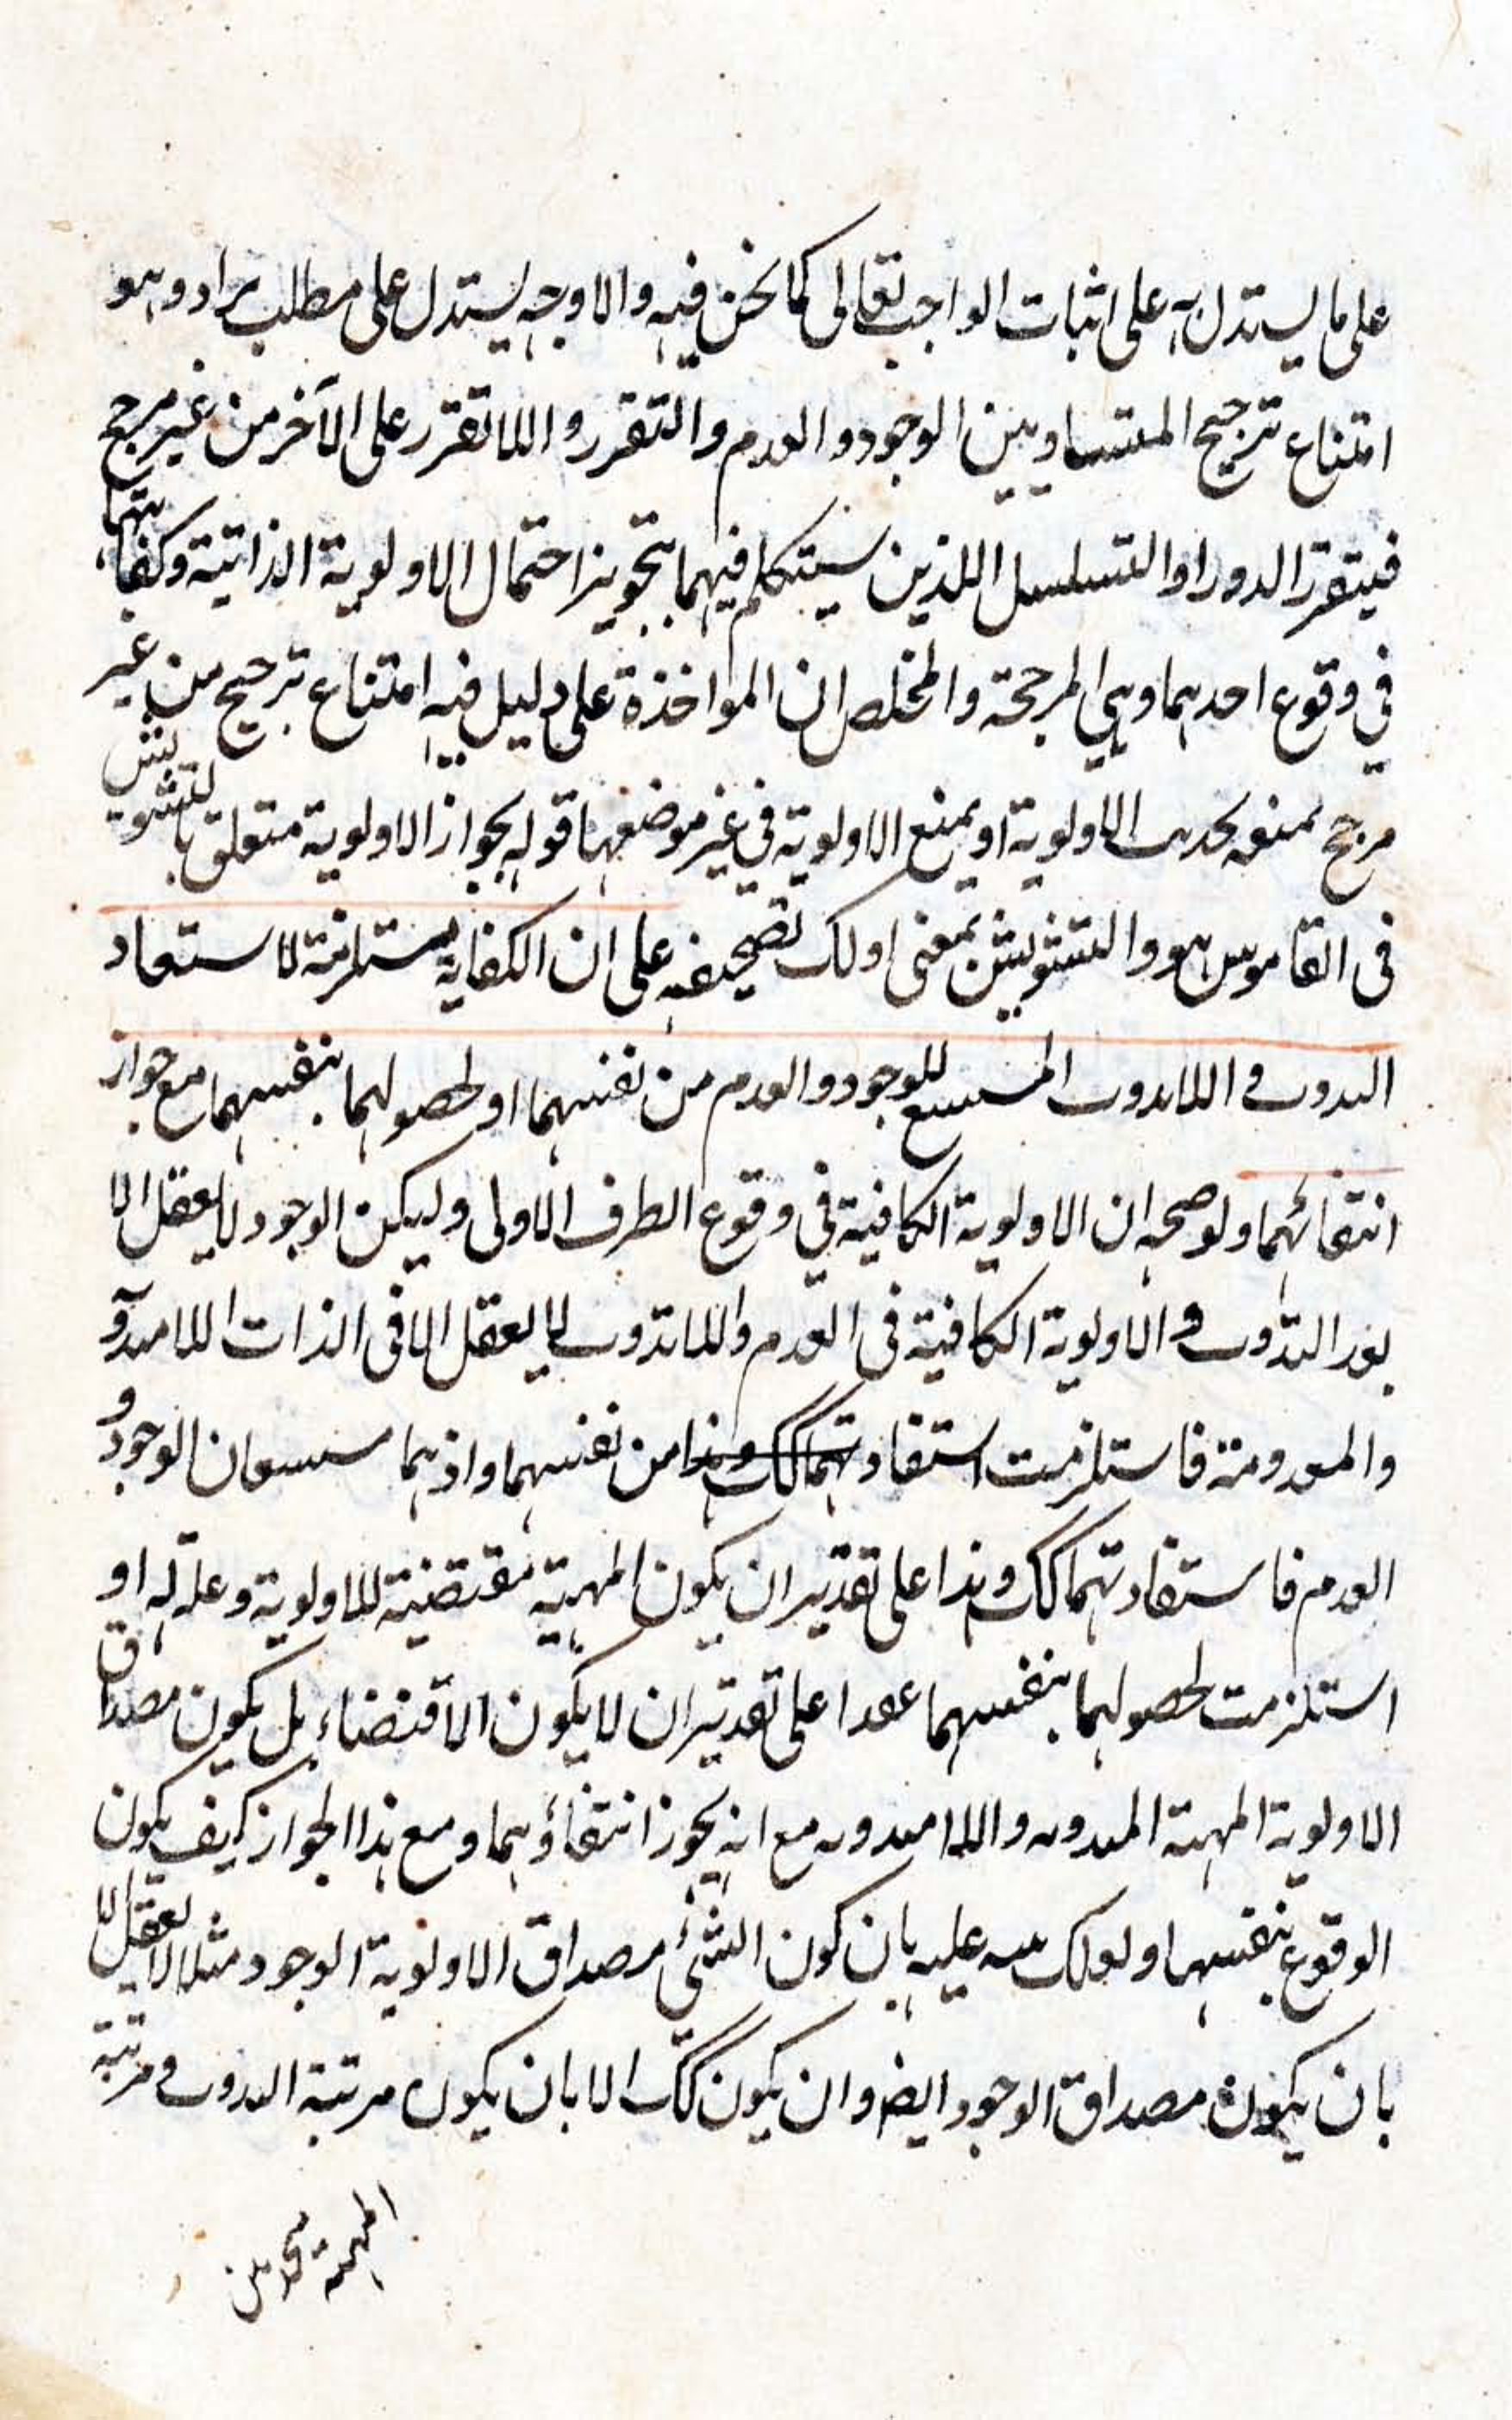 على ما يستدل به على اثبات الواجب تعالى كما نحن فيه والاوجه يستدل على مطلب براد وهو
امتناع ترجيح المتساويين الوجود والعدم والتقرر واللاتقرر على الآخر من غير مرجح
فيتقرر الدور او التسلسل اللذين سيتكلم فيهما بتجويز احتمال الاولوية الذاتية وكفايتها
في وقوع احدهما وهي المرجحة والمخلص ان المواخذة على دليل فيه امتناع ترجيح من غير
مرجح الاولوية او بمنع الاولوية في غير موضعها قوله بجواز الاولوية متعلق بالتشويش
فى القاموس هو والتشويش بمعنى اولك تصحيفه على ان الكفاية مستلزمة لاستفاد
للوجود والعدم من نفسهما او لحصولهما بنفسهما مع جواز
انتفائهما ولوضحه ان الاولوية الكافية في وقوع الطرف الاولى وليكن الوجود لا يعقل الا
بعد التذوت و الاولوية الكافية فى العدم واللاتذوت لا يعقل الا فى الذات
والمعدومة فاستلزمت استفادتهما كك وهذا من نفسهما واذ هما الوجود و
العدم فاستفادتهما كك وهذا على تقدير ان يكون المهية مقتضية للاولوية وعلة له او
استلزمت لحصولهما بنفسهما على تقدير ان لا يكون الاقتضاء بل يكون مصداق
الاولوية المهية مع انه يجوز انتفاؤهما ومع هذا الجواز كيف يكون
الوقوع بنفسهما ولعلك عليه بان كون الشئ مصداق الاولوية الوجود مثلا لا يعقل الا
بان يكون مصداق الوجود ايض وان يكون كك الا بان يكون مرتبة التذوت و مرتبة